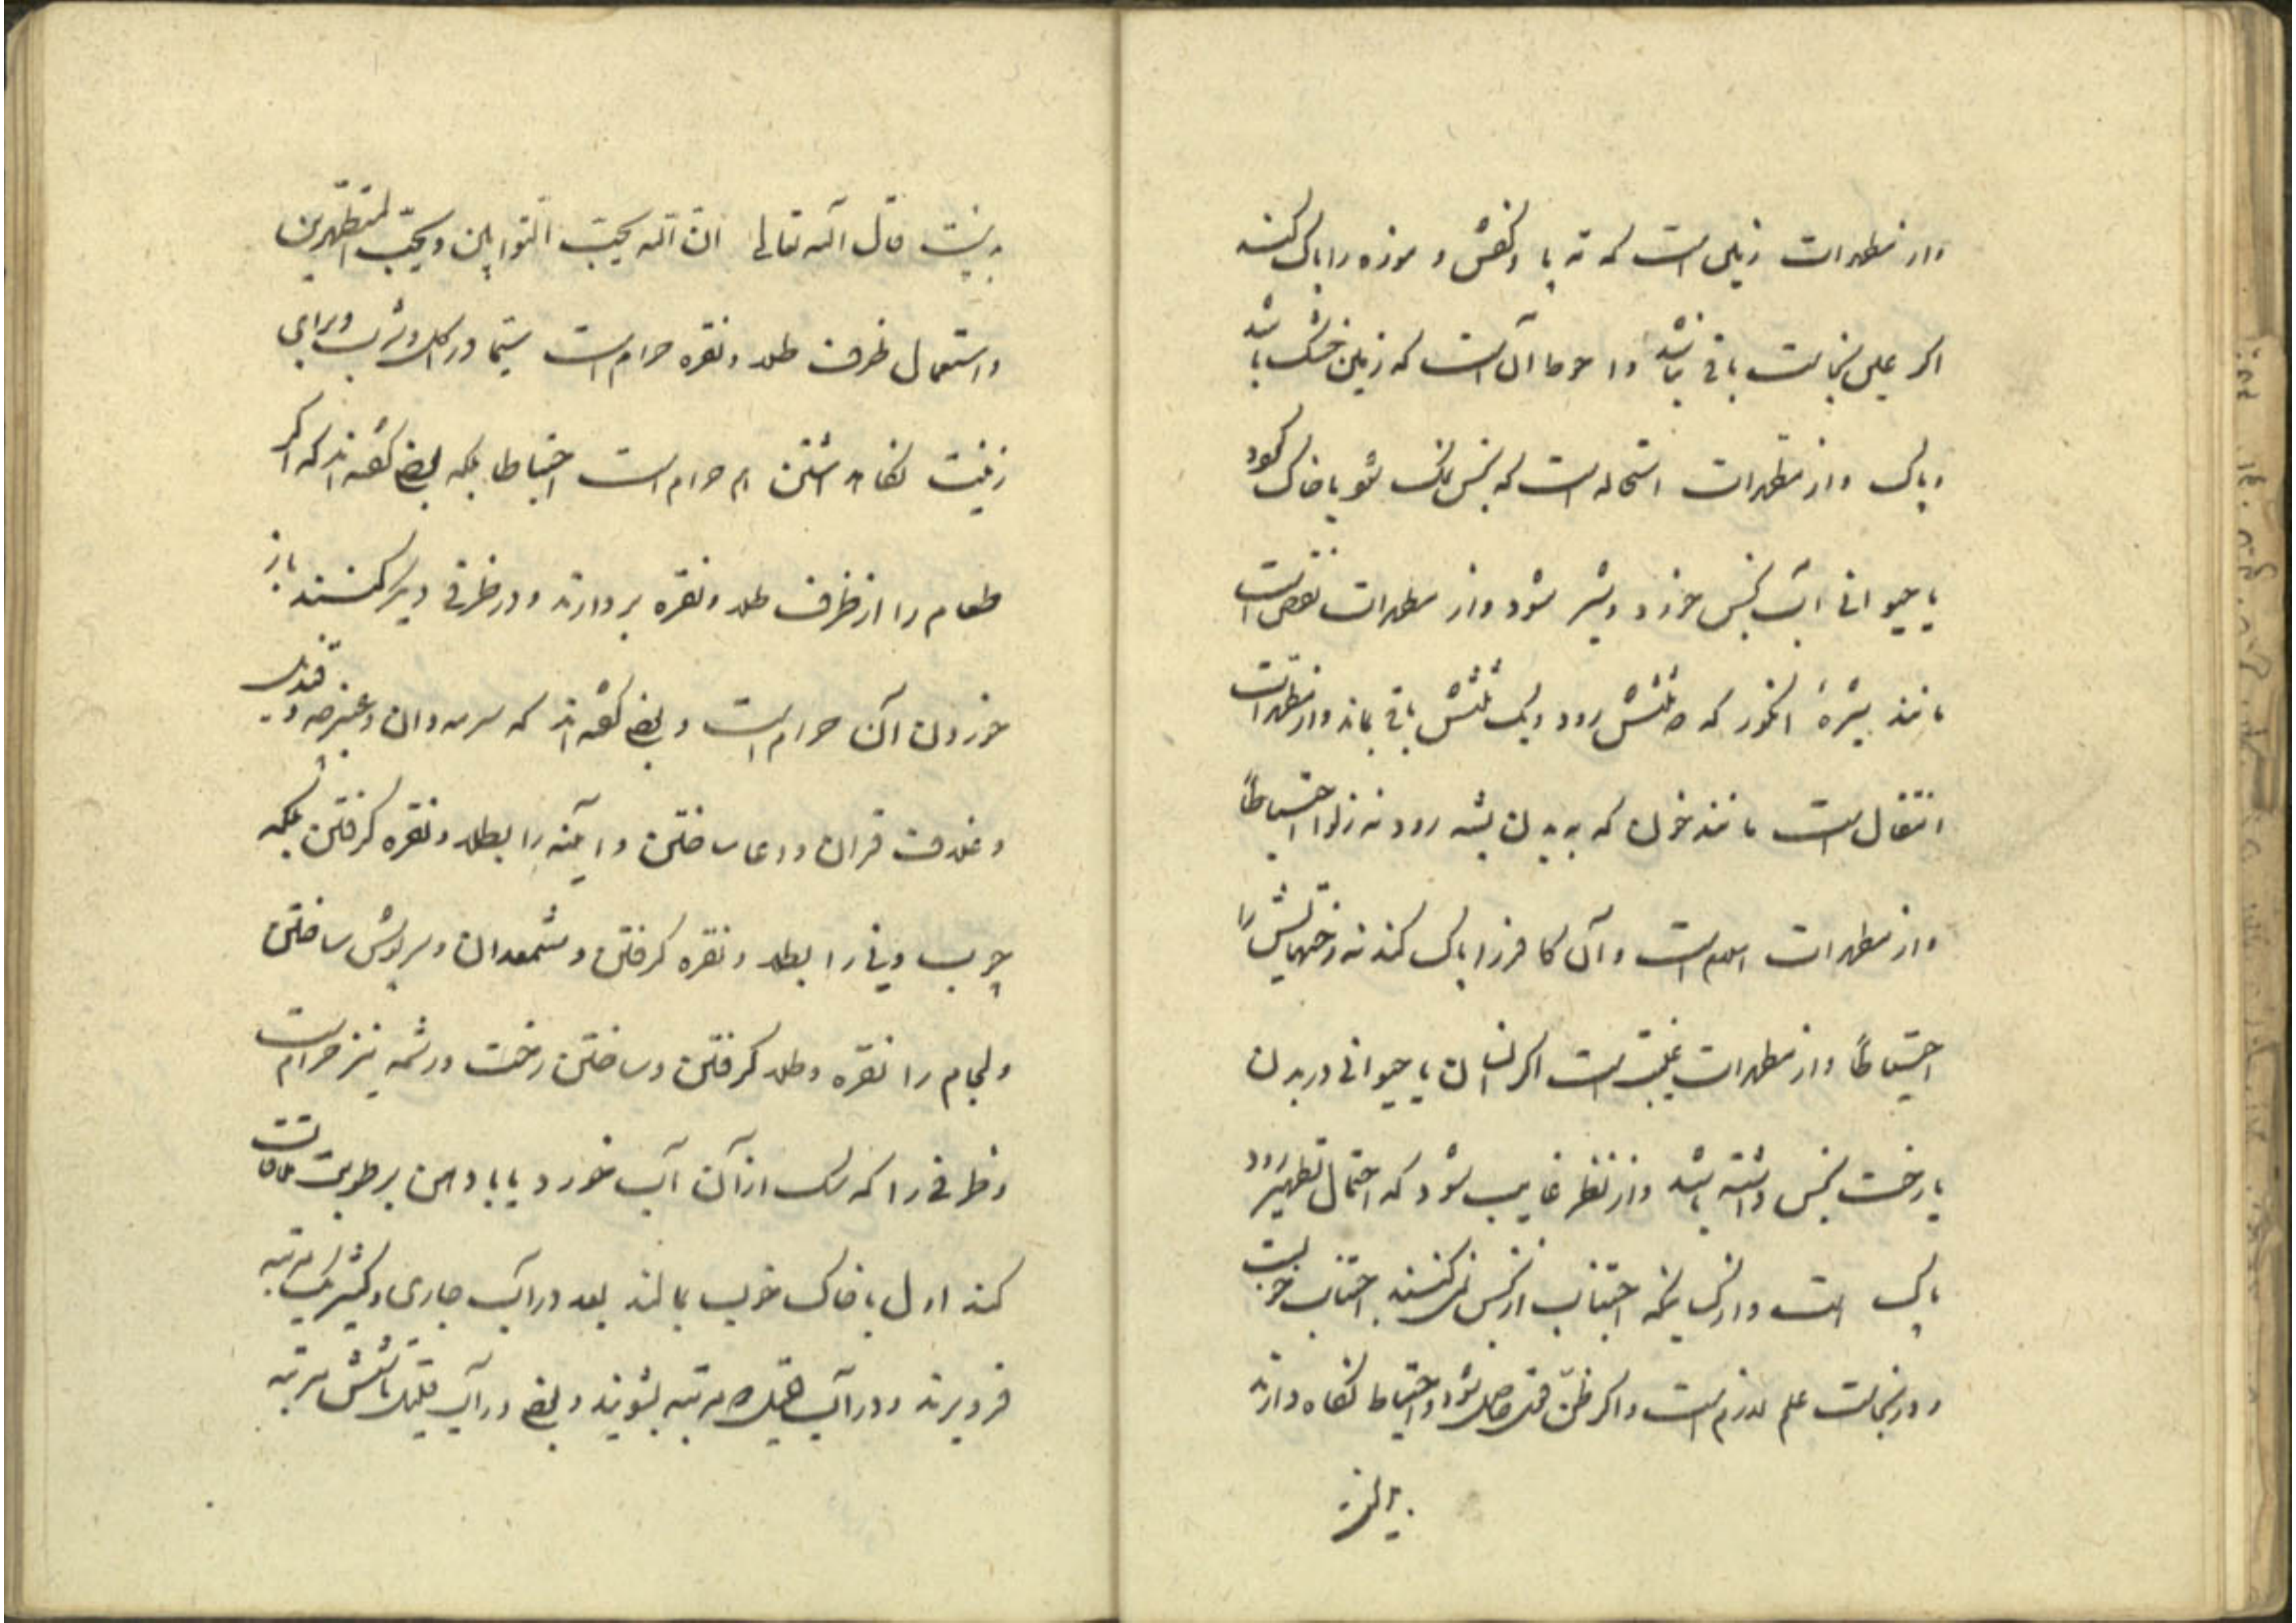 واز مطهرات زمین است که ته پا و کفش و موزه را پاک کند
اگر عین نجاست باقی نباشد و احوط آن است که زمین خشک باشد
و پاک و از مطهرات استحاله است که نجس نمک شود یا خاک گردد
یا حیوانی آب نجس خورد و شیر شود و از مطهرات نقص است
مانند شیرهٔ انگور که دو ثلثش رود و یک ثلثش باقی بماند و از مطهرات
انتقال است مانند خون که به بدن پشه رود نه زلو احتیاطاً
و از مطهرات اسلام است و آن کافر را پاک کند نه رختهایش را
احتیاطاً و از مطهرات غیبت است اگر انسان یا حیوانی در بدن
یا رخت نجس داشته باشد و از نظر غایب شود که احتمال تطهیر رود
پاک است و از کسانیکه اجتناب از نجس نمی‌کنند اجتناب خوبست
و در نجاست علم لازم است و اگر ظن قوی حاصل شود احتیاط نگاه دارند
بد نیست قال الله تعالی ان الله یحب التوابین و یحب المتطهرین
و استعمال ظرف طلا و نقره حرام است سیما در اکل و شرب و برای
زینت نگاه داشتن هم حرام است احتیاطا بلکه بعضی گفته‌اند که اگر
طعام را از ظرف طلا و نقره بردارند و در ظرفی دیگر کنند باز
خوردن آن حرام است و بعضی گفته‌اند که سرمه‌دان و عنبرچه و قندیل
و غلاف قران و دعا ساختن و آینه را بطلا و نقره گرفتن بلکه
چوب و نی را بطلا و نقره گرفتن و شمعدان و سرپوش ساختن
و لجام را نقره و طلا گرفتن و ساختن رخت و رشمه نیز حرام است
و ظرفی را که سگ از آن آب خورد یا با دهن برطوبت ملاقات
کند اول با خاک خوب بمالند بعد در آب جاری و کثیر یک مرتبه
فرو برند و در آب قلیل دو مرتبه بشویند و بعضی در آب قلیل تا شش مرتبه